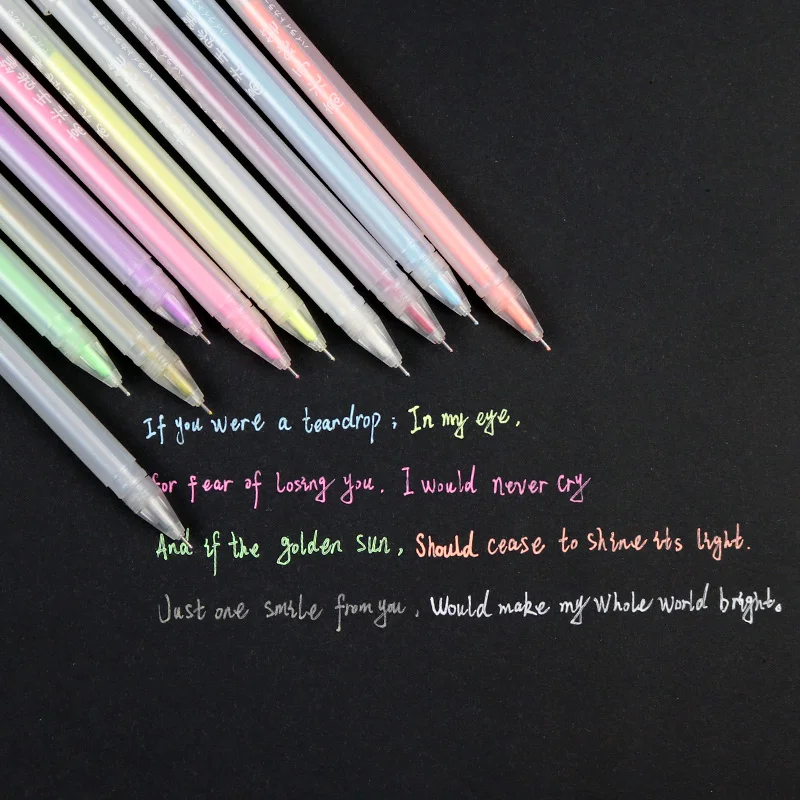 If you were a teardrop; In my eye,
for fear of losing you. I would never cry
And if the golden sun, Should cease to shine its light.
Just one smile from you, Would make my whole world bright.